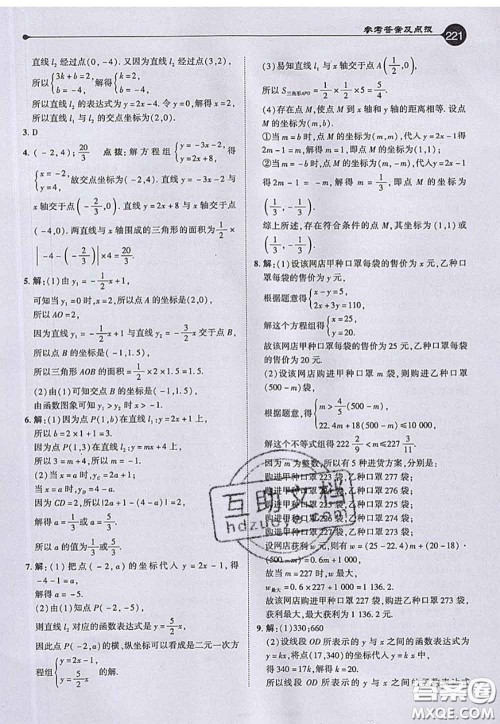 参考答案及点拨 221
直线 l₂ 经过点(0,-4).又因为直线 l₂ 经过点(3,2),
所以{3k+b=2, b=-4. 解得{k=2, b=-4.
所以直线 l₂ 的表达式为 y=2x-4.令 y=0,解得 x=2.
所以直线 l₂ 与 x 轴的交点坐标为(2,0).
3. D
4. (-2,4); 20/3 点拨:解方程组{y=-3x-2, y=2x+8, 得
{x=-2, y=4, 故交点坐标为(-2,4).直线 y=-3x-2 与
x 轴交于点(-2/3,0).直线 y=2x+8 与 x 轴交于点
(-4,0).两直线与 x 轴围成的三角形的面积为 1/2 ×
|-4-(-2/3)|×4=20/3.
5. 解:(1)由 y₁=-1/2 x+1,
可知当 y₁=0 时,x=2,所以点 A 的坐标是(2,0).
所以 AO=2.
因为直线 y₁=-1/2 x+1 与直线 y₂=-3/2 x 交于点 B,
所以点 B 的坐标是(-1,1.5).
所以三角形 AOB 的面积=1/2×2×1.5=1.5.
(2)由(1)可知交点 B 的坐标是(-1,1.5),
由函数图象可知 y₁>y₂ 时 x>-1.
6. 解:(1)因为点 P(1,b)在直线 l₁:y=2x+1 上,
所以 b=2×1+1=3.
因为点 P(1,3)在直线 l₂:y=mx+4 上,
所以 3=m+4.所以 m=-1.
(2)当 x=a 时,y_C=2a+1.
当 x=a 时,y_D=4-a.
因为 CD=2,所以|2a+1-(4-a)|=2.
解得 a=1/3 或 a=5/3.
所以 a 的值为 1/3 或 5/3.
7. 解:(1)把点(-2,a)的坐标代入 y=2x-1,得
-4-1=a.
解得 a=-5.
(2)由(1)知点 P(-2,-5),
则直线 l₂ 对应的函数表达式为 y=5/2 x.
因此点 P(-2,a)的横、纵坐标可以看成是二元一次方
程组{y=2x-1, y=5/2 x 的解.
(3)易知直线 l₁ 与 x 轴交于点 A(1/2,0).
所以 S三角形APO=1/2×1/2×5=5/4.
(4)存在点 M,使点 M 到 x 轴和 y 轴的距离相等.设点
M 的坐标为(m,b).
①当 m=b 时,点 M(m,m),代入 y=2x-1 得
2m-1=m,解得 m=1,即点 M 的坐标为(1,1).
②当 m=-b 时,点 M(m,-m),代入 y=2x-1 得
2m-1=-m,解得 m=1/3,即点 M 的坐标为
(1/3,-1/3).
综上所述,存在符合条件的点 M,其坐标为(1,1)或
(1/3,-1/3).
8. 解:(1)设该网店甲种口罩每袋的售价为 x 元,乙种口
罩每袋的售价为 y 元.
根据题意得{x-y=5, 2x+3y=110.
解这个方程组得{x=25, y=20.
故该网店甲种口罩每袋的售价为 25 元,乙种口罩每袋
的售价为 20 元.
(2)设该网店购进甲种口罩 m 袋,则购进乙种口罩
(500-m)袋.
根据题意,得{m>4/5(500-m), 22.4m+18(500-m)≤10 000.
解这个不等式组得 222 2/9<m≤227 3/11.
因为 m 为整数,所以有 5 种进货方案,分别是:
购进甲种口罩 223 袋,乙种口罩 277 袋;
购进甲种口罩 224 袋,乙种口罩 276 袋;
购进甲种口罩 225 袋,乙种口罩 275 袋;
购进甲种口罩 226 袋,乙种口罩 274 袋;
购进甲种口罩 227 袋,乙种口罩 273 袋.
设网店获利 w 元,则有 w=(25-22.4)m+(20-18)·
(500-m)=0.6m+1 000.
故当 m=227 时,w 最大,
w最大=0.6×227+1 000=1 136.2.
故该网店购进甲种口罩 227 袋,购进乙种口罩 273 袋,
获利最大,最大利润为 1 136.2 元.
9. 解:(1)330;660
(2)设线段 OD 所表示的 y 与 x 之间的函数表达式为
y=kx,将点(17,340)的坐标代入 y=kx 中,
得 340=17k,解得 k=20.
所以线段 OD 所表示的 y 与 x 之间的函数表达式
互助文库
hdzuoye.com
答案圈
MXQE.COM